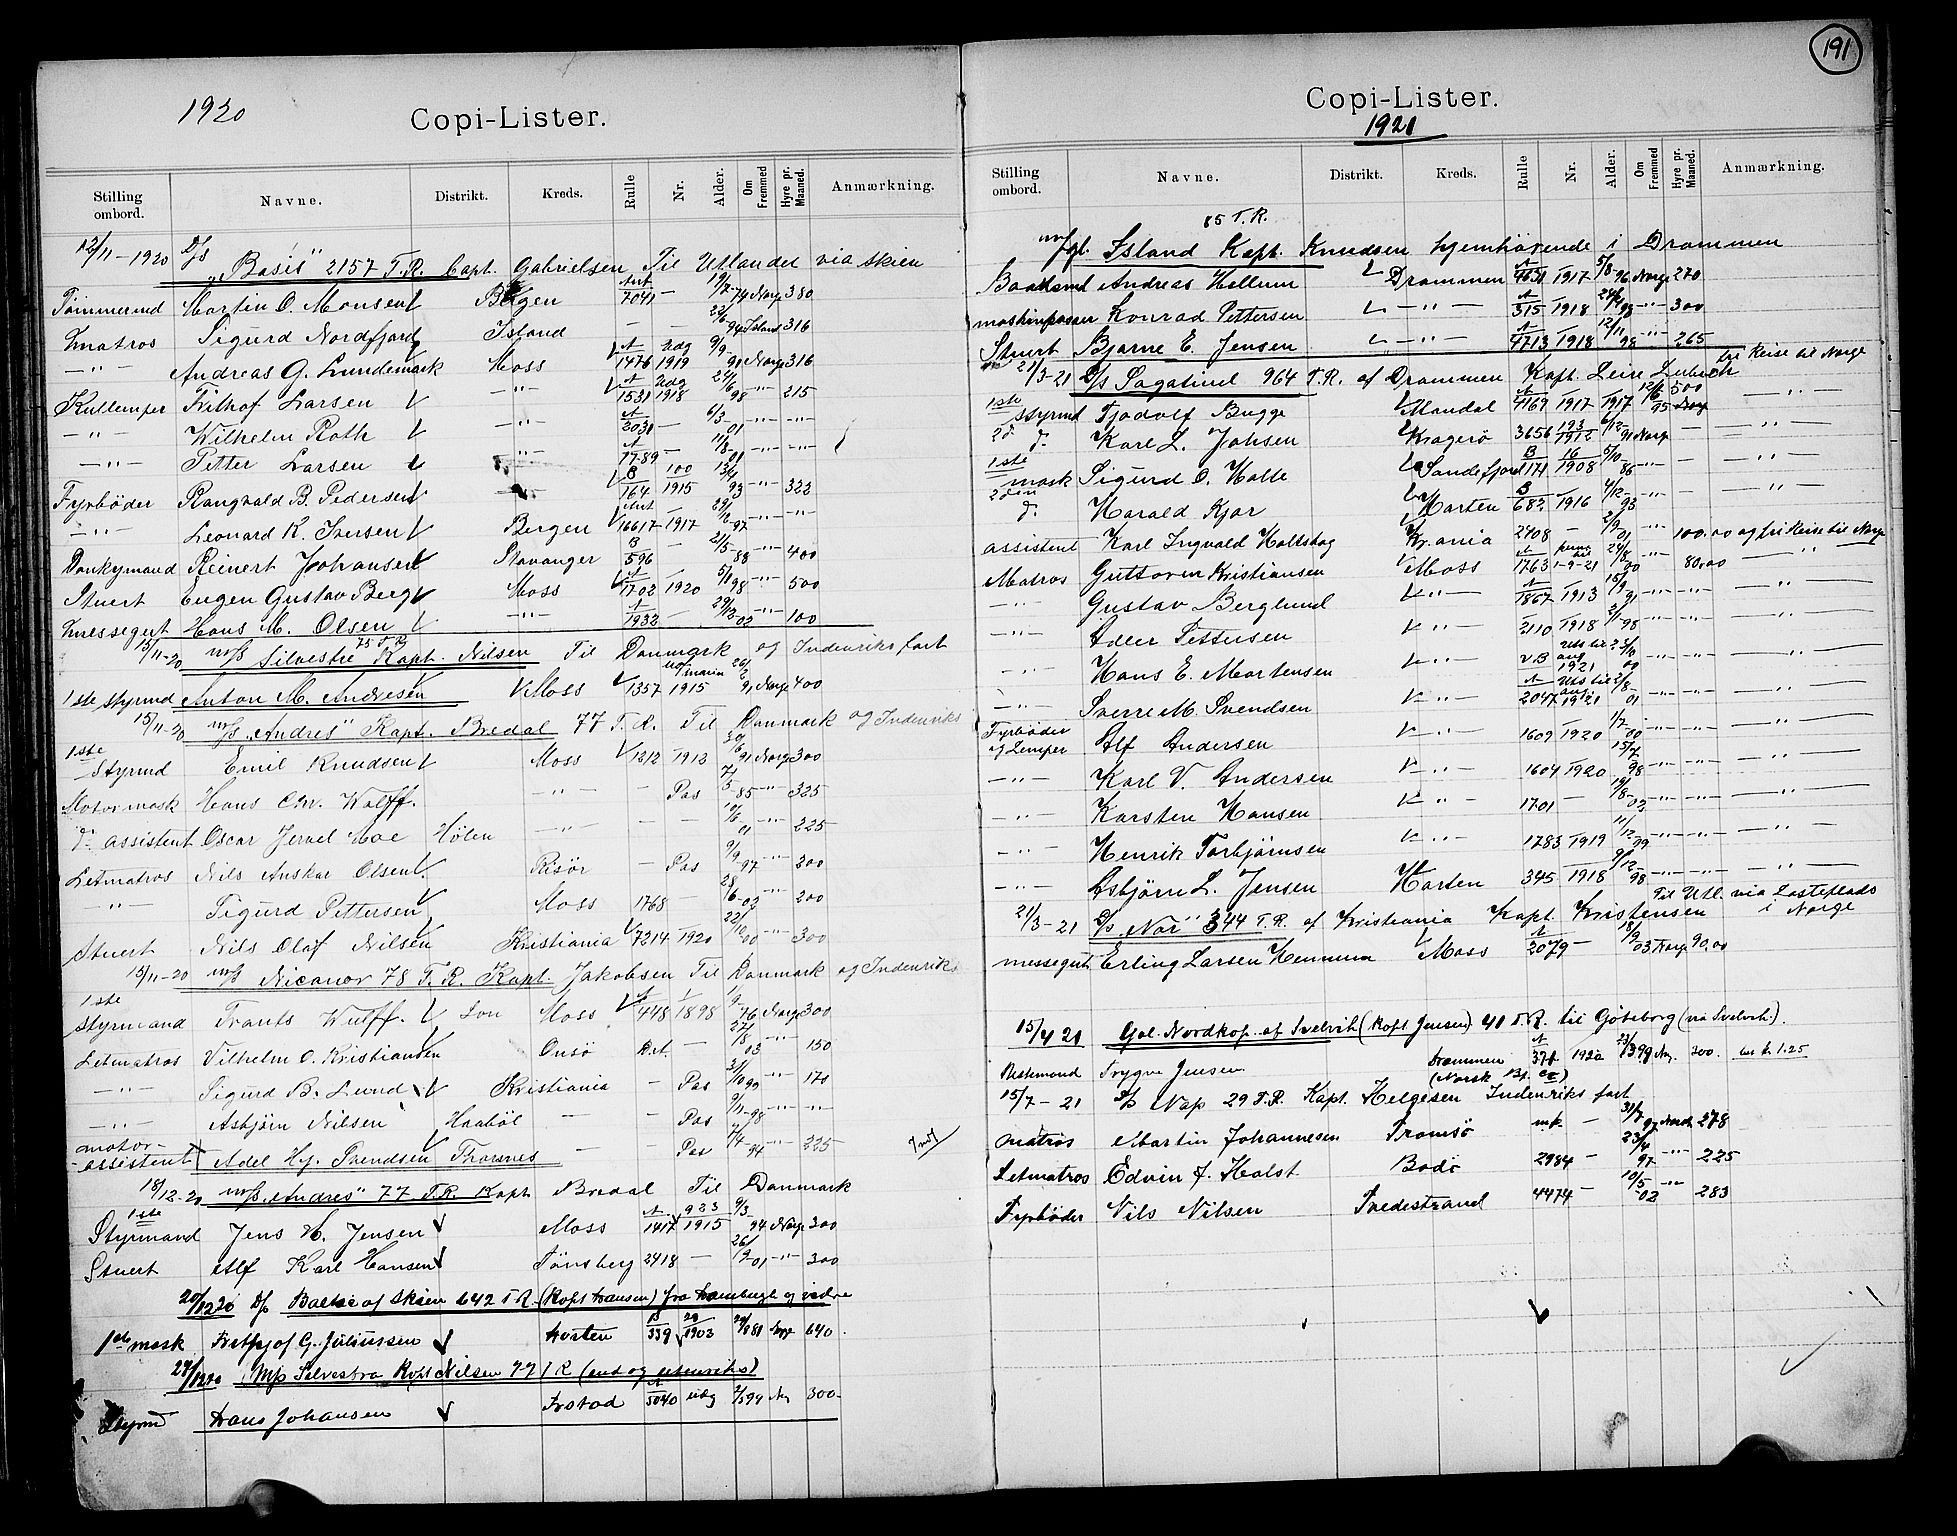 1920
Copi-Lister.
Stilling ombord. Navne. Distrikt. Kreds. Rulle Nr. Alder. Om Fremmed Hyre pr. Maaned. Anmærkning.
12/11-1920 D/s „Basis" 2157 T.R. Capt. Gabrielsen Til Utlandet via Skien
Tømmermd Martin O. Monsen Bergen 7041 — 19/7-74 Norge 380
Lmatros Sigurd Nordfjord Island — — 94 Island 316
—"— Andreas G. Lundemark Moss A 1476 1919 9/9-91 Norge 316
Kullemper Frithof Larsen —"— A 1531 1918 98 —"— 215
—"— Wilhelm Roth —"— A 2031 — 6/3 01 —"— —"—
—"— Petter Larsen —"— A 1789 — 11/8 01 —"— —"—
Fyrbøder Rangvald B. Pedersen —"— B 164 100 1915 93 —"— 322
—"— Leonard K. Iversen Bergen 16617 1917 29/12-97 —"— —"—
Donkymand Reinert Johansen Stavanger B 596 — 21/5-88 —"— 400
Stuert Eugen Gustav Berg Moss A 1702 1920 5/1 98 —"— 500
Lmessegut Hans M. Olsen —"— A 1932 — 02 —"— 100
15/11-20 m/s Silvestre 75 T.R. Kapt. Nilsen Til Danmark og Indenriks fart
1ste styrmd Anton M. Andresen Moss 1357 1915 91 Norge 400
15/11-20 m/s „Andres" Kapt. Bredal 77 T.R. Til Danmark og Indenriks
1ste Styrmd Emil Knudsen Moss 1212 1912 91 Norge 300
Motormask Hans Chr. Wolff. —"— — Pas 85 —"— 325
d. assistent Oscar Jervel Moe Hølen —"— — — 10/6 01 —"— 225
Letmatros Nils Anskar Olsen Risör — Pas 9/9-97 —"— 300
—"— Sigurd Pettersen Moss 1768 — 28/6-02 —"— 200
Stuert Nils Olaf Nilsen Kristiania 7214 1920 22/10 00 —"— 300
15/11-20 m/s Nicanor 78 T.R. Kapt. Jakobsen Til Danmark og Indenriks
1ste styrmand Frants Wulff. Son Moss A 448 1898 76 Norge 300
Letmatros Vilhelm O. Kristiansen Onsö — 27/8 03 —"— 150
—"— Sigurd B. Lund Kristiania — Pas 31/10 99 —"— 170
—"— Asbjørn Nilsen Haabøl — Pas 9/11-98 —"— —"—
motor-assistent Adel Hj. Svendsen Thorsnes — Pas 7/4-94 —"— 225
18/12-20 m/s „Andres" 77 T.R. Kapt Bredal Til Danmark
1ste Styrmand Jens H. Jensen Moss A 1417 923 1915 9/3 94 Norge 300
Stuert Alf Karl Hansen Tönsberg 2418 — 26/9-01 —"— 300
20/12 20 D/s Baltic af Skien 642 T.R. (Kapt Hansen) fra Hamburgh og videre
1ste mask Frithjof G. Juliussen Horten B 339 20 1903 81 Norge 640.
27/12 20 M/s Silvestra Kapt Nilsen 77 T R (uten og indenriks)
Styrmd Hans Johansen Frstad A 5040 udg 99 No 300-
191
Copi-Lister.
1921
Stilling ombord. Navne. Distrikt. Kreds. Rulle Nr. Alder. Om Fremmed Hyre pr. Maaned. Anmærkning.
85 T.R.
m/gl. Island Kapt. Knudsen hjemhörende i Drammen
Baatsmd Andreas Hellum Drammen A 4631 1917 5/8-96 Norge 270
maskinpasser Konrad Pettersen —"— A 315 1918 98 —"— 300
Stuert Bjarne E. Jensen —"— A 4713 1918 12/11 98 —"— 265
21/3-21 D/s Sagatind 964 T.R. af Drammen Kapt. Leire Lubeck fri Reise til Norge
1ste styrmd Tjodolf Bugge Mandal A 4169 1917 1917 12/6 95 500 Norge —"—
2d. d. Karl L. Johsen Kragerö 3656 123 1912 6/12-91 Norge — —"—
1ste mask Sigurd O. Holte Sandefjord B 171 16 1908 5/10-86 —"— — —"—
2den d. Harald Kjær Horten B 682 1916 4/12-93 —"— — —"—
assistent Karl Ingvald Holtskog Kr.ania 2408 — 2/9 01 —"— 100.00 og fri Reise til Norge
Matros Guttorm Kristiansen Moss A 1763 1-9-21 24/8 00 —"— 80,00 —"—
—"— Gustav Berglund —"— A 1867 1913 15/9 91 —"— —"— —"—
—"— Adler Pettersen —"— 2110 1918 2/11-98 —"— —"— —"—
—"— Hans E. Mortensen —"— v B Uts til aug 1921 00 —"— —"— —"—
—"— Sverre M. Svendsen —"— A 2047 Uts til aug 1921 2/8-01 —"— —"— —"—
Fyrbøder og Lemper Alf Andersen —"— 1609 1920 1/7-00 —"— —"— —"—
—"— Karl V. Andersen —"— 1604 1920 15/7-98 —"— —"— —"—
—"— Karsten Hansen —"— 1701 — 19/8-02 —"— —"— —"—
—"— Henrik Torbjørnsen —"— 1783 1919 11/12 99 —"— —"— —"—
—"— Asbjörn L. Jensen Horten 345 1918 9/12-98 —"— —"— —"—
21/3-21 D/s „Nor" 344 T.R. af Kristiania Kapt. Kristensen Til Utl. via Lasteplads i Norge
messegut Erling Larsen Hemmum Moss A 2079 — 18/9 03 Norge 90,00
15/4 21 Gal. Nordkap af Svelvik (Kapt Jensen) 41 T.R. til Göteborg (via Svelvik).
Bestemand Trygve Jensen Drammen A 371 1920 99 No. 300.
(Norsk Bf. Ctr)
15/7-21 D/s Nap 29 T.R. Kapt. Helgesen Indenriks fart
matros Martin Johannesen Tromsö mk — 31/7 97 Norsk 278
Letmatros Edvin J. Holst Bodö 2984 — 23/4 97 —"— 225
Fyrböder Nils Nilsen Tvedestrand 4474 — 10/5-02 —"— 283